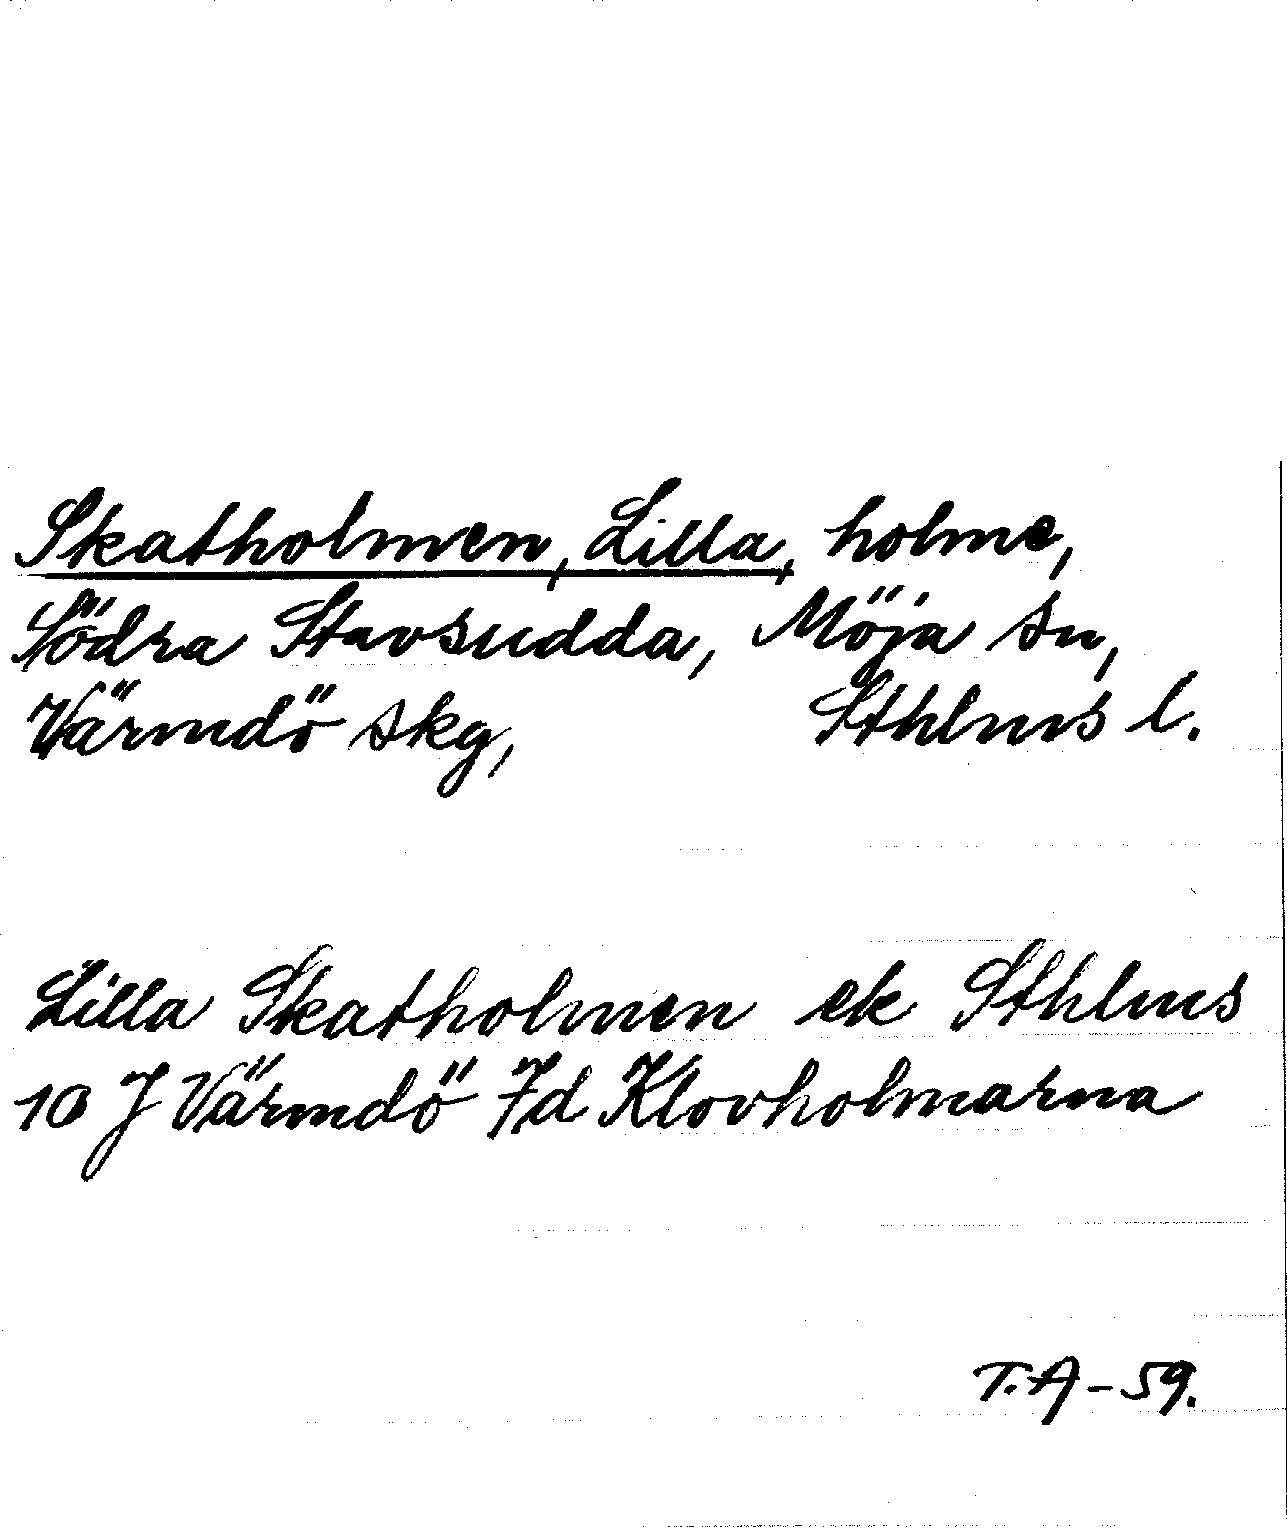 Skatholmen, Lilla, holme,
Södra Stavsudda, Möja sn,
Värmdö skg, Sthlms l.
Lilla Skatholmen ek Sthlms
10 J Värmdö 7d Klovholmarna
T.A-59.